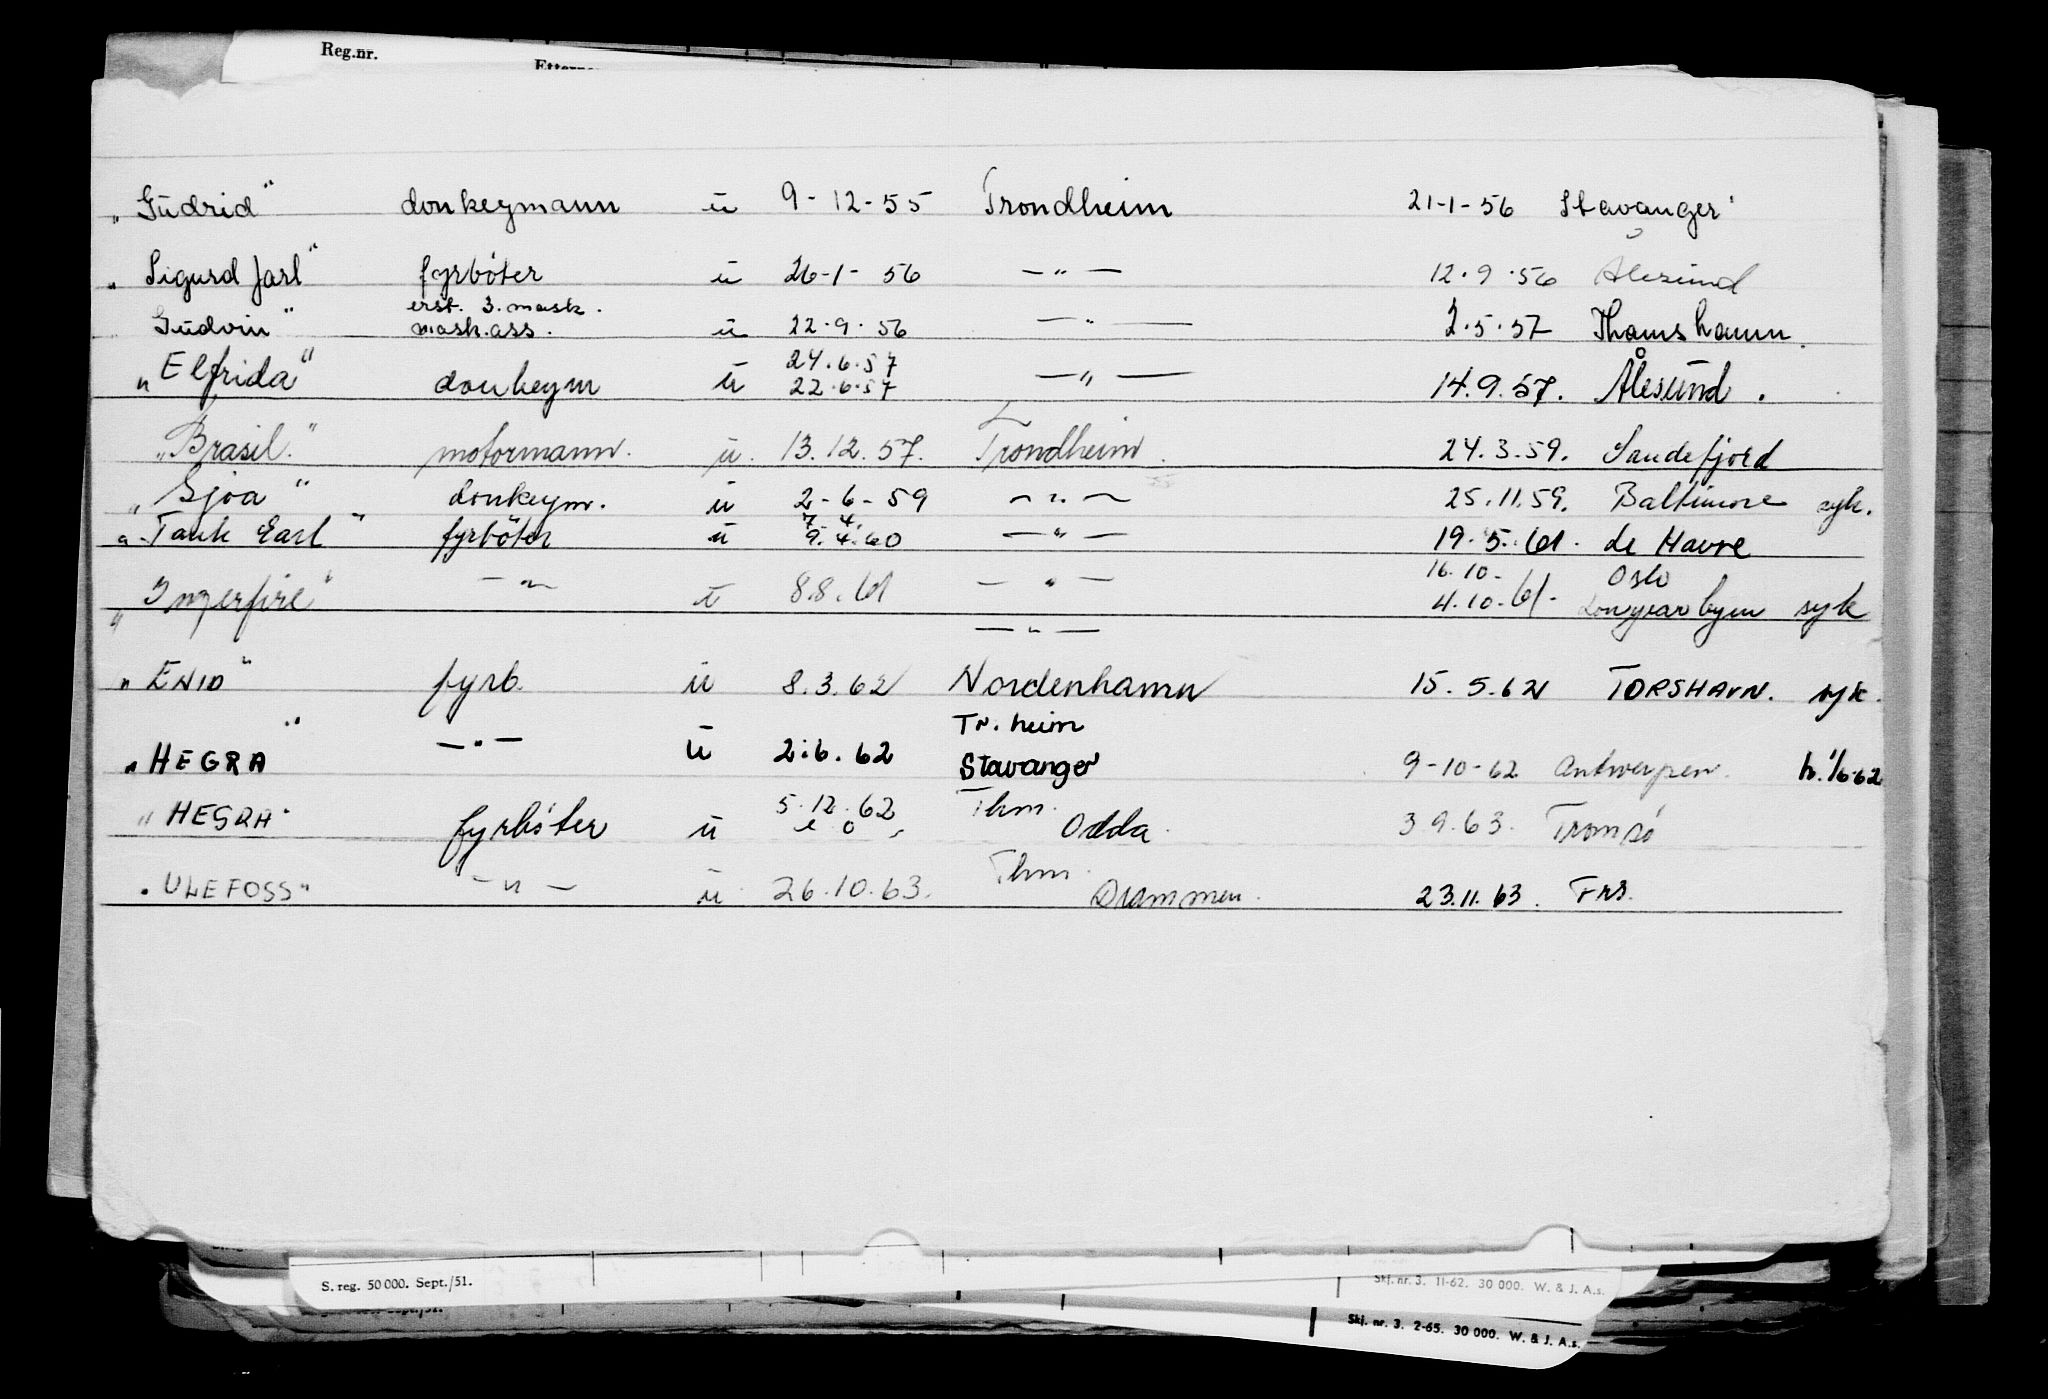 Reg.nr.
„Gudrid" donkeymann u 9-12-55 Trondheim 21-1-56 Stavanger
„Sigurd Jarl" fyrböter u 26-1-56 —"— 12.9.56 Ålesund
erst. 3. mask.
Gudvin" mask.ass. u 22.9.56 —"— 2.5.57 Thamshamn.
24.6.57
„Elfrida" donkeym u 22.6.57 —"— 14.9.57. Ålesund.
„Brasil." motormann. u. 13.12.57. Trondheim. 24.3.59. Sandefjord
„Sjoa" donkeym. u 2-6-59 —"— 25.11.59. Baltimore syk.
7 4.
„Tank Earl" fyrböter u 9.4.60 —"— 19.5.61. de Havre
16.10- Oslo
„Ingerfire" —"— u 8.8.61 —"— 4.10.61. Longyearbyen syk
—"—
„ENID" fyrb. u 8.3.62 Nordenhamn 15.5.62 TORSHAVN. syk.
Tr.heim
„HEGRA" —"— u 2.6.62 Stavanger 9-10-62 Antwerpen. h. 1/6-62
5.12.62 Thm.
„HEGRA" fyrböter u Odda. 3 9.63. Tromsö
Thm.
„ULEFOSS" —"— u 26.10.63. Drammen. 23.11.63. Frs.
S. reg. 50 000. Sept./51.
Skj. nr. 3. 11-62. 30 000. W. & J. A.s.
Skj. nr. 3. 2-65. 30 000. W. & J. A.s.